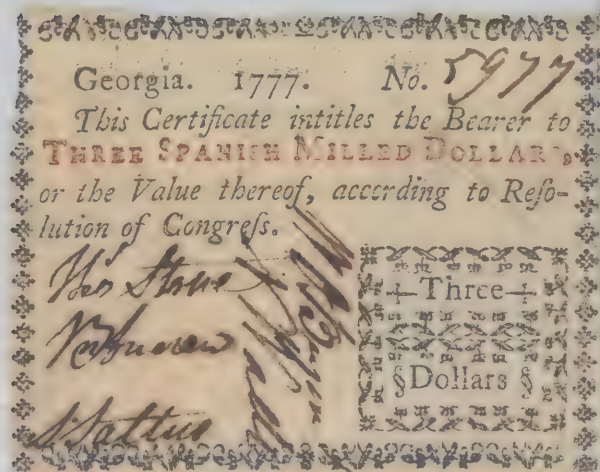 Georgia. 1777. No. 5977
This Certificate intitles the Bearer to
THREE SPANISH MILLED DOLLARS,
or the Value thereof, according to Reſo-
lution of Congreſs.
Three
§Dollars §